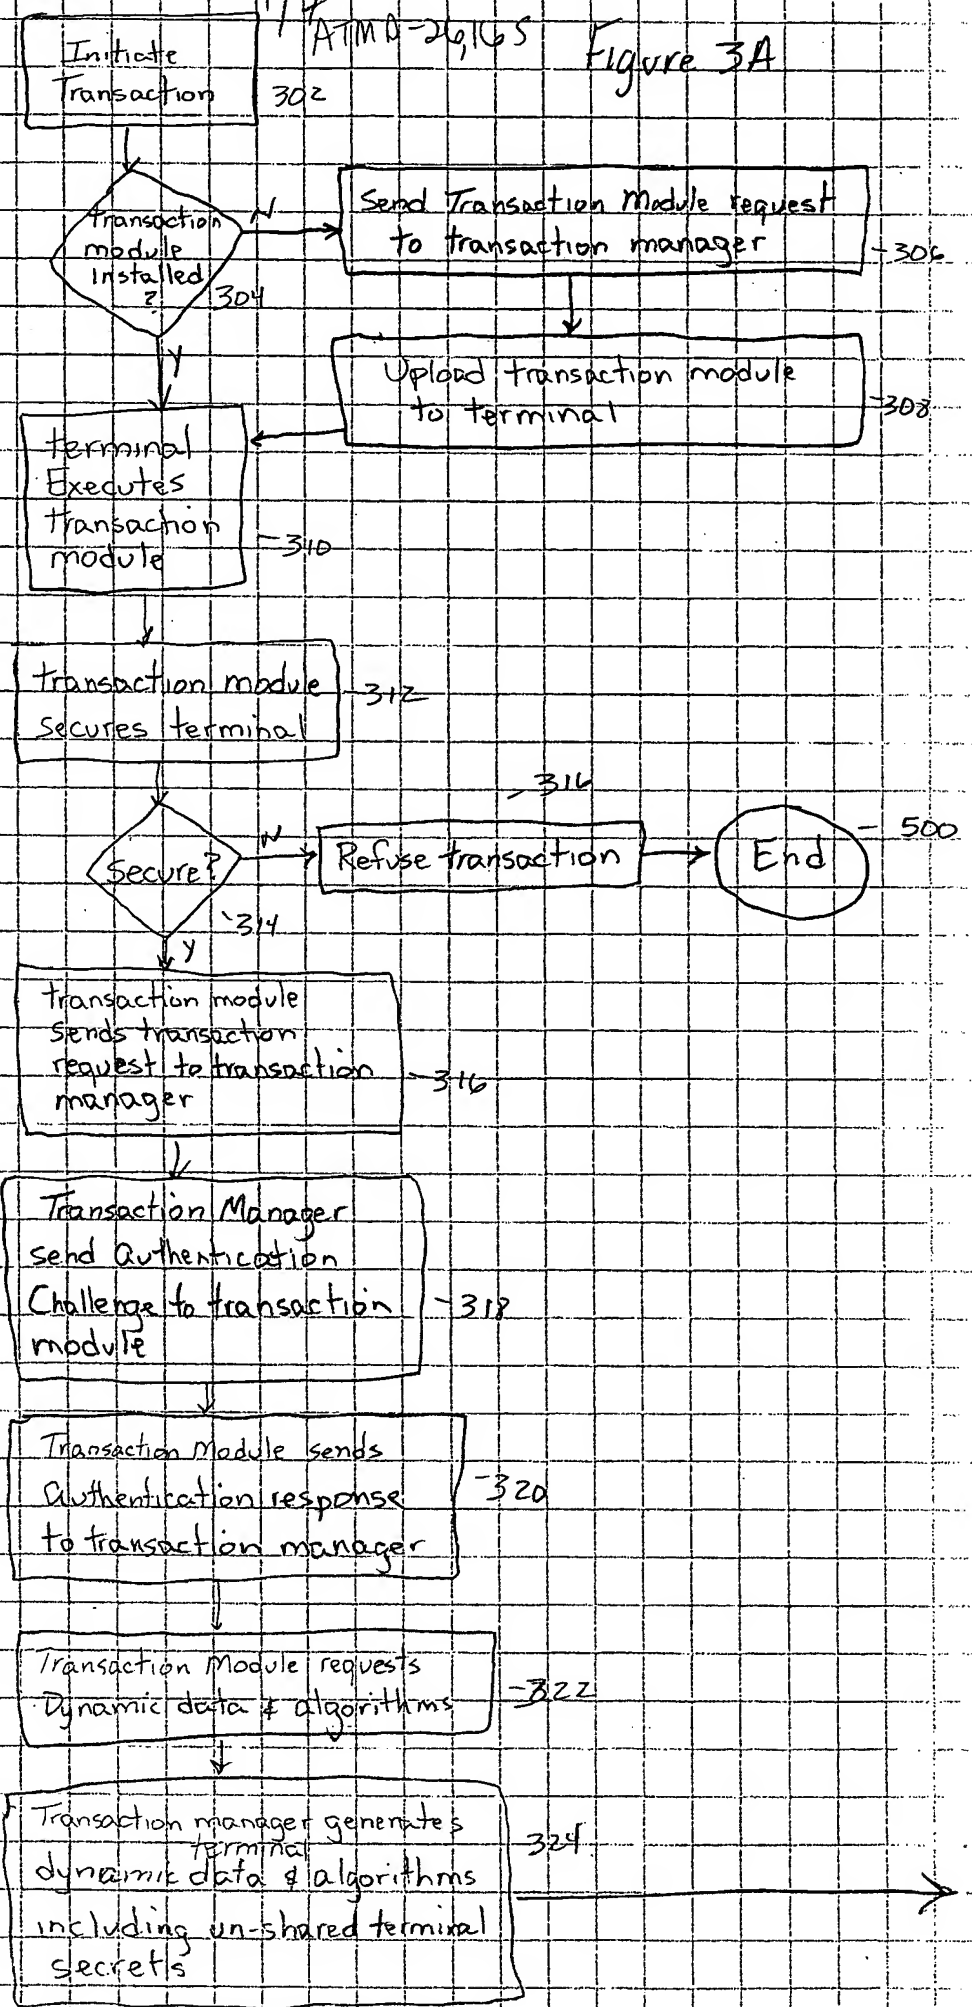 ATMD-26,165
Figure 3A
Initiate
Transaction
302
transaction
module
installed
?
304
N
Send Transaction Module request
to transaction manager
306
Y
Upload transaction module
to terminal
308
terminal
Executes
transaction
module
310
transaction module
secures terminal
312
316
secure?
314
N
Refuse transaction
End
500
Y
transaction module
sends transaction
request to transaction
manager
316
Transaction Manager
send Authentication
Challenge to transaction
module
318
Transaction Module sends
Authentication response
to transaction manager
320
Transaction Module requests
Dynamic data & algorithms
322
Transaction manager generates
terminal
dynamic data & algorithms
including un-shared terminal
secrets
324